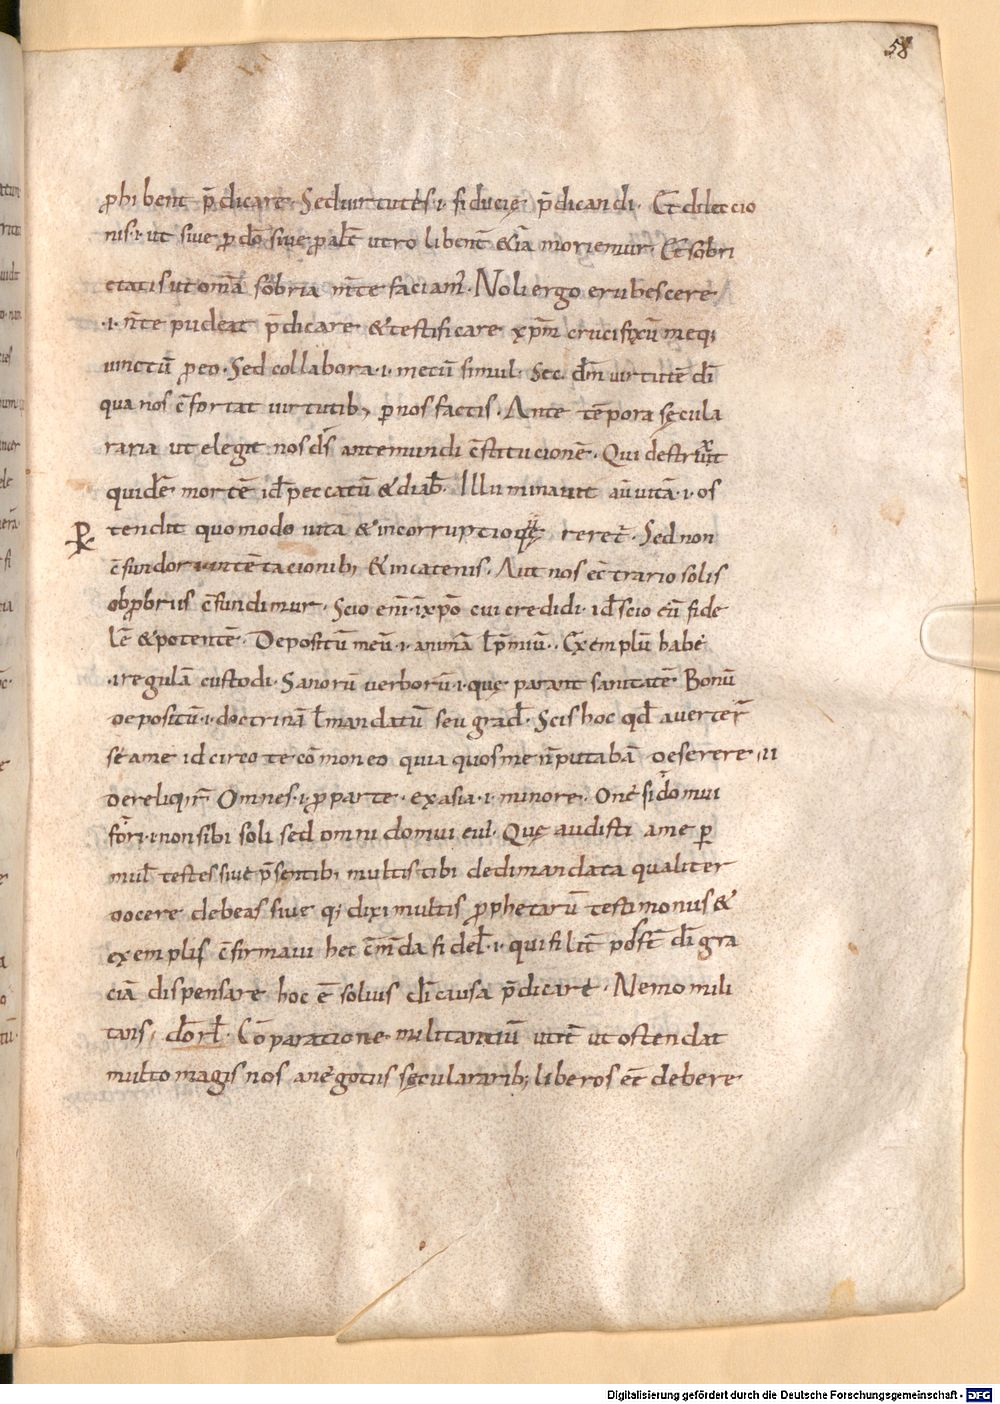 58
ꝓhibent p̄dicare. Sed uirtutes .i. fiducię p̄dicandi. Et dileccio
nis .i. ut siue ꝓ dō siue ꝓ alt̄ utro libent̄ &iā moriemur. Et sobri
etatis ut om̄a sobria m̄te faciam᾽. Noli ergo erubescere
.i. n̄ te pudeat p̄dicare & testificare xp̄m crucifixū meq;
uinctū ꝓ eo. Sed collabora .i. mecū simul. Sec̄dm̄ uirtutē dī
qua nos c̄fortat uirtutib; ꝑ nos factis. Ante tēpora sęcula
raria ut elegit nos ds̄ ante mundi c̄stitucionē. Qui destruxit
quidē mortē id̄ peccatū & diab̄. Illuminauit aū uitā .i. os
tendit quomodo uita & incorruptio reret᾽. Sed non
c̄fundor in tēptacionib; & in catenis. Aut nos ec̄trario solis
obꝓbriis c̄fundimur. Scio enī. ī xp̄o cui credidi. id̄ scio eū fide
lē & potentē. Depositū meū .i. animā ł p̄miū. Exemplū habe
.i. regulā custodi. Sanorū uerborū .i. quę parant sanitatē Bonū
depositū .i. doctrinā ł mandatū seu grad̄. Scis hoc qd̄ auerter̄
se a me idcirco te cōmoneo quia quos me n̄ putabā deserere
dereliquer̄ Omnes .i. ꝓ parte. ex asia .i. minore. domui
.i. non sibi soli sed omni domui eius. Quę audisti a me ꝑ
mul̄ testes siue p̄sentib; multis tibi dedi mandata qualiter
docere debeas siue q; dixi multis ꝓphetarū testimoniis &
exemplis c̄firmaui hec c̄m̄da fidel̄ .i. qui dī gra
ciā dispensare hoc ē solius dī causa p̄dicare. Nemo mili
tans Cōparatione militantiū utit̄ ut ostendat
multo magis nos a negotiis sęcularib; liberos eē debere
Digitalisierung gefördert durch die Deutsche Forschungsgemeinschaft - DFG